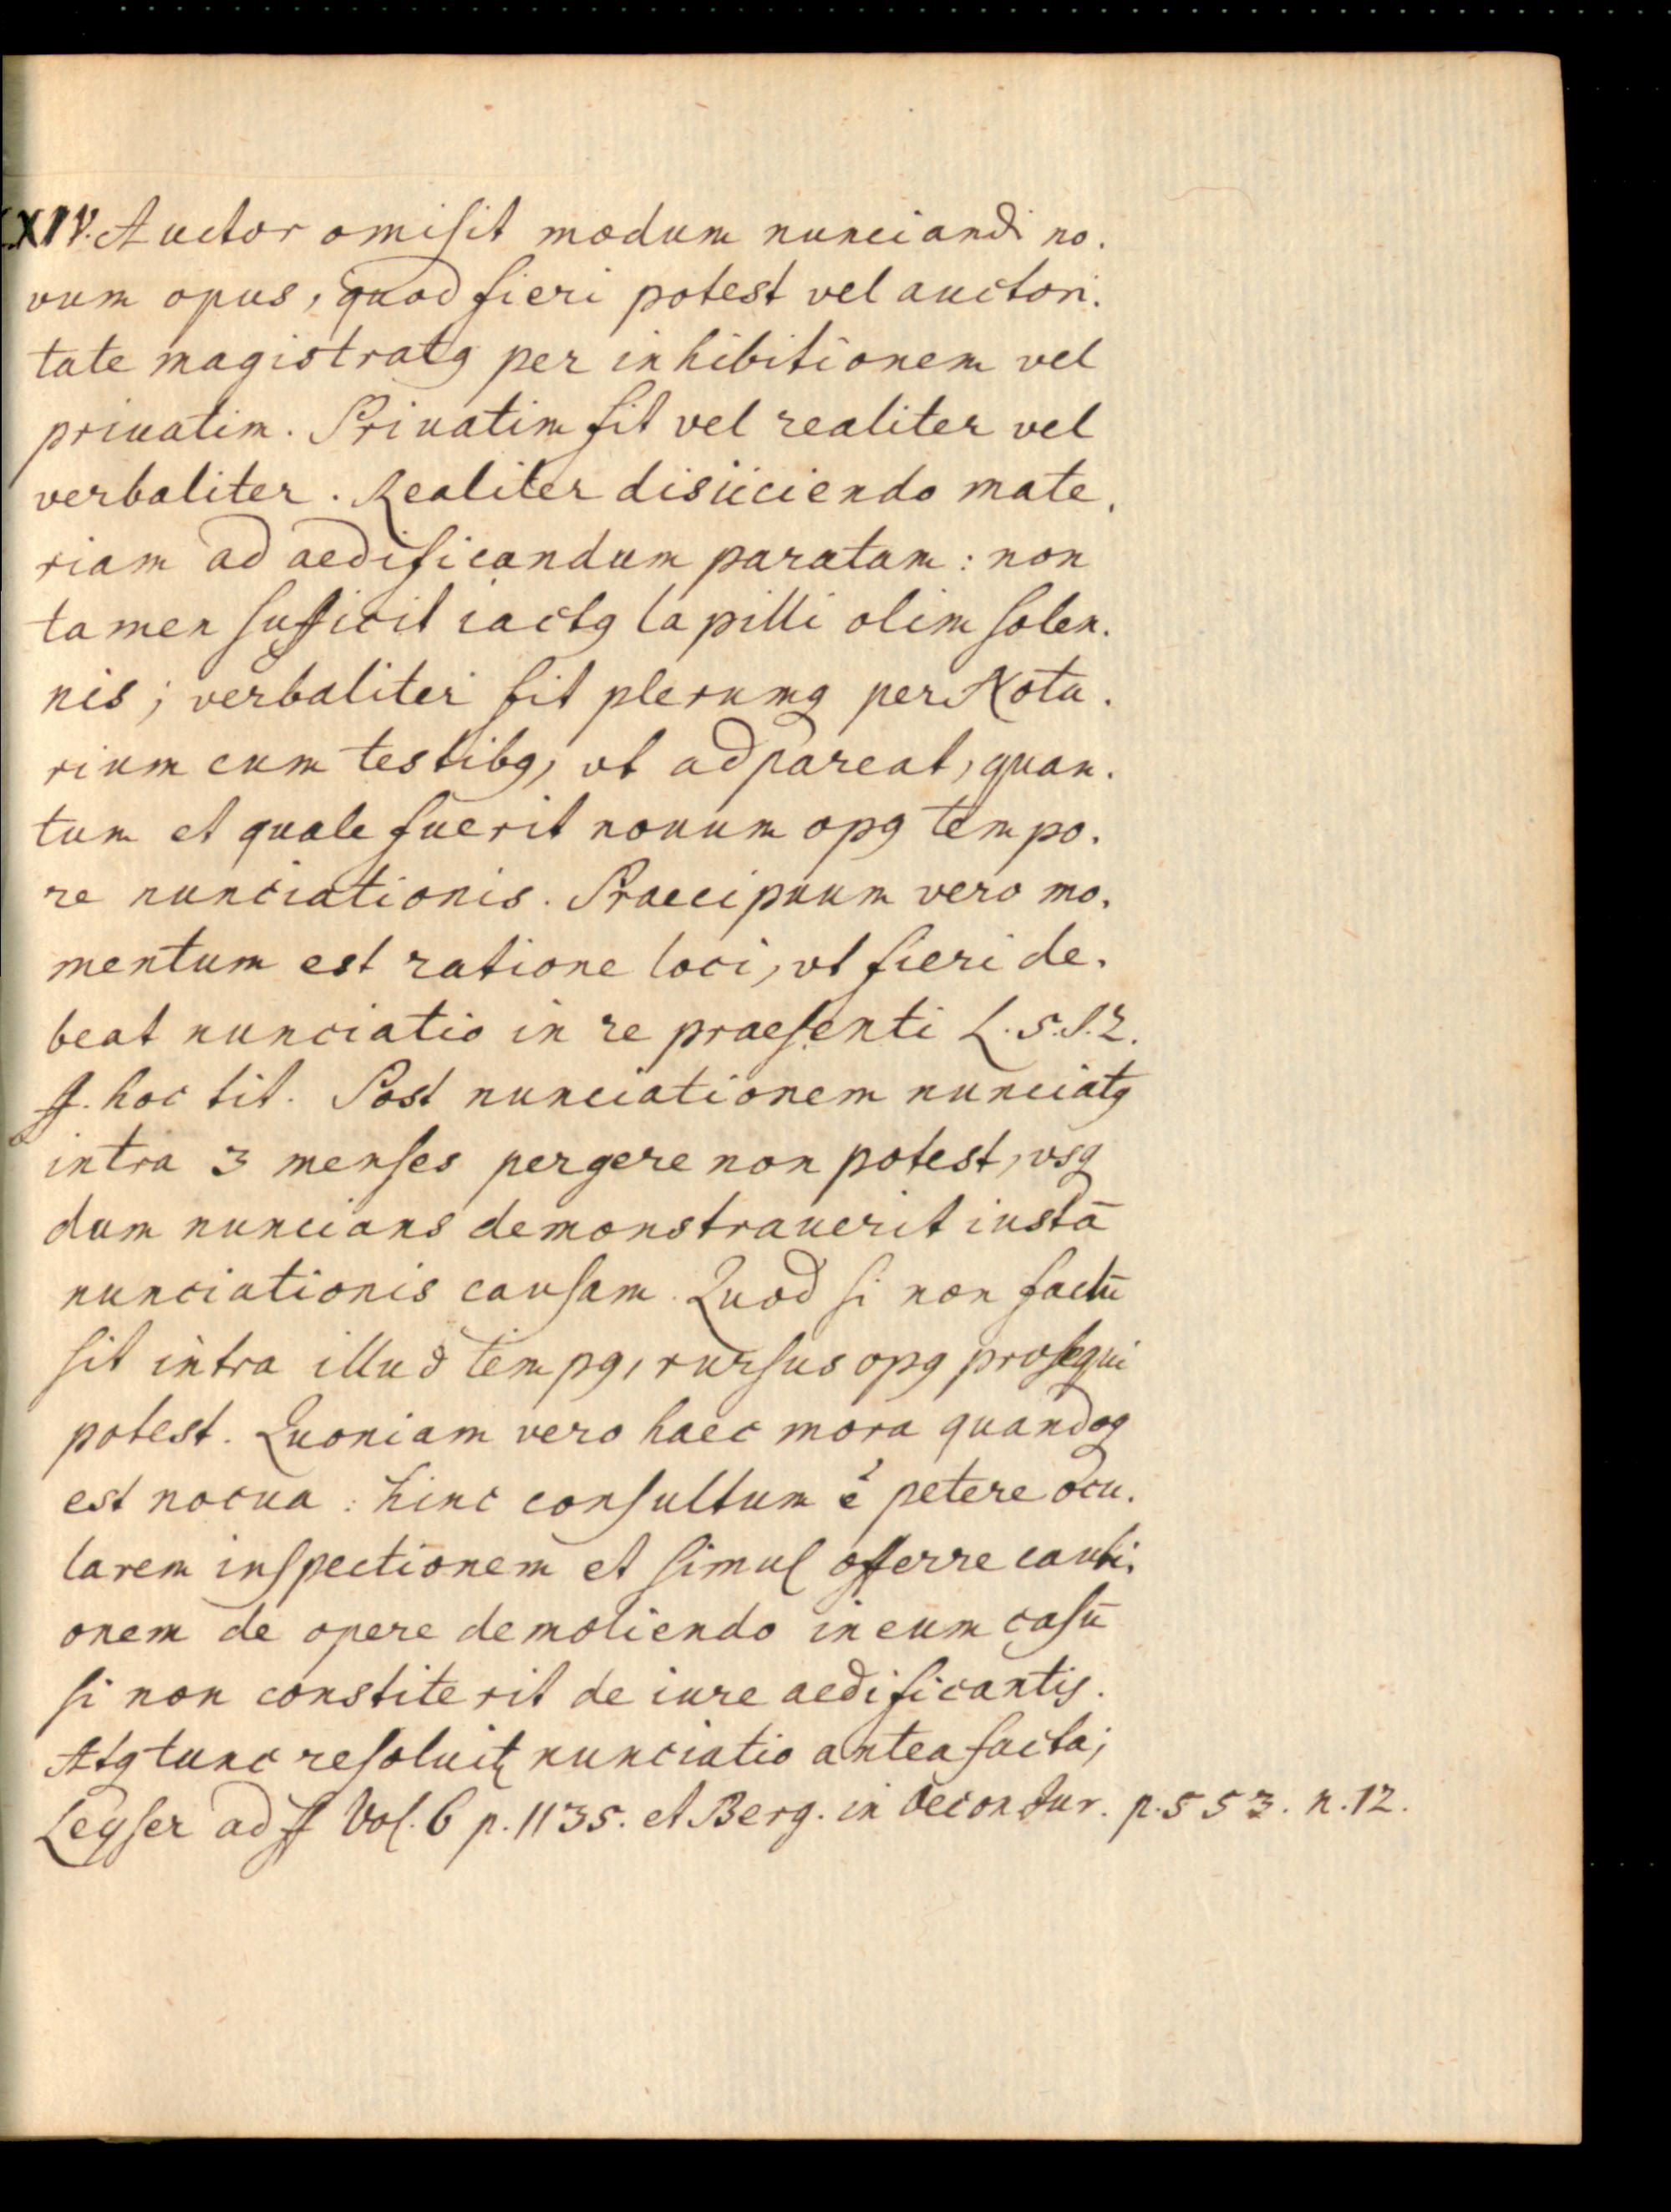 XIV. Auctor omisit modum nunciandi no.
vum opus, quod fieri potest vel auctori.
tate magistratꝯ per inhibitionem vel
priuatim. Priuatim fit vel realiter vel
verbaliter. Realiter disiiciendo mate.
riam ad aedificandum paratam: non
tamen sufficit iactꝯ lapilli olim solen.
nis; verbaliter fit plerumq per Nota.
rium cum testibꝯ, vt adpareat, quan.
tum et quale fuerit nouum opꝯ tempo.
re nunciationis. Praecipuum vero mo.
mentum est ratione loci, vt fieri de.
beat nunciatio in re praesenti L. 5. §. 2.
ff. hoc tit. Post nunciationem nunciatꝯ
intra 3 menses pergere non potest, vsq
dum nuncians demonstrauerit iustā
nunciationis causam. Quod si non factū
sit intra illud tempꝯ, rursus opꝯ prosequi
potest. Quoniam vero haec mora quandoq
est nocua: hinc consultum é petere ocu.
larem inspectionem et simul offerre cauti.
onem de opere demoliendo in eum casū
si non constiterit de iure aedificantis.
Atq tunc resoluitꝝ nunciatio antea facta;
Leyser ad ff Vol. 6 p. 1135. et Berg. in Oecon Jur. p. 553. n. 12.